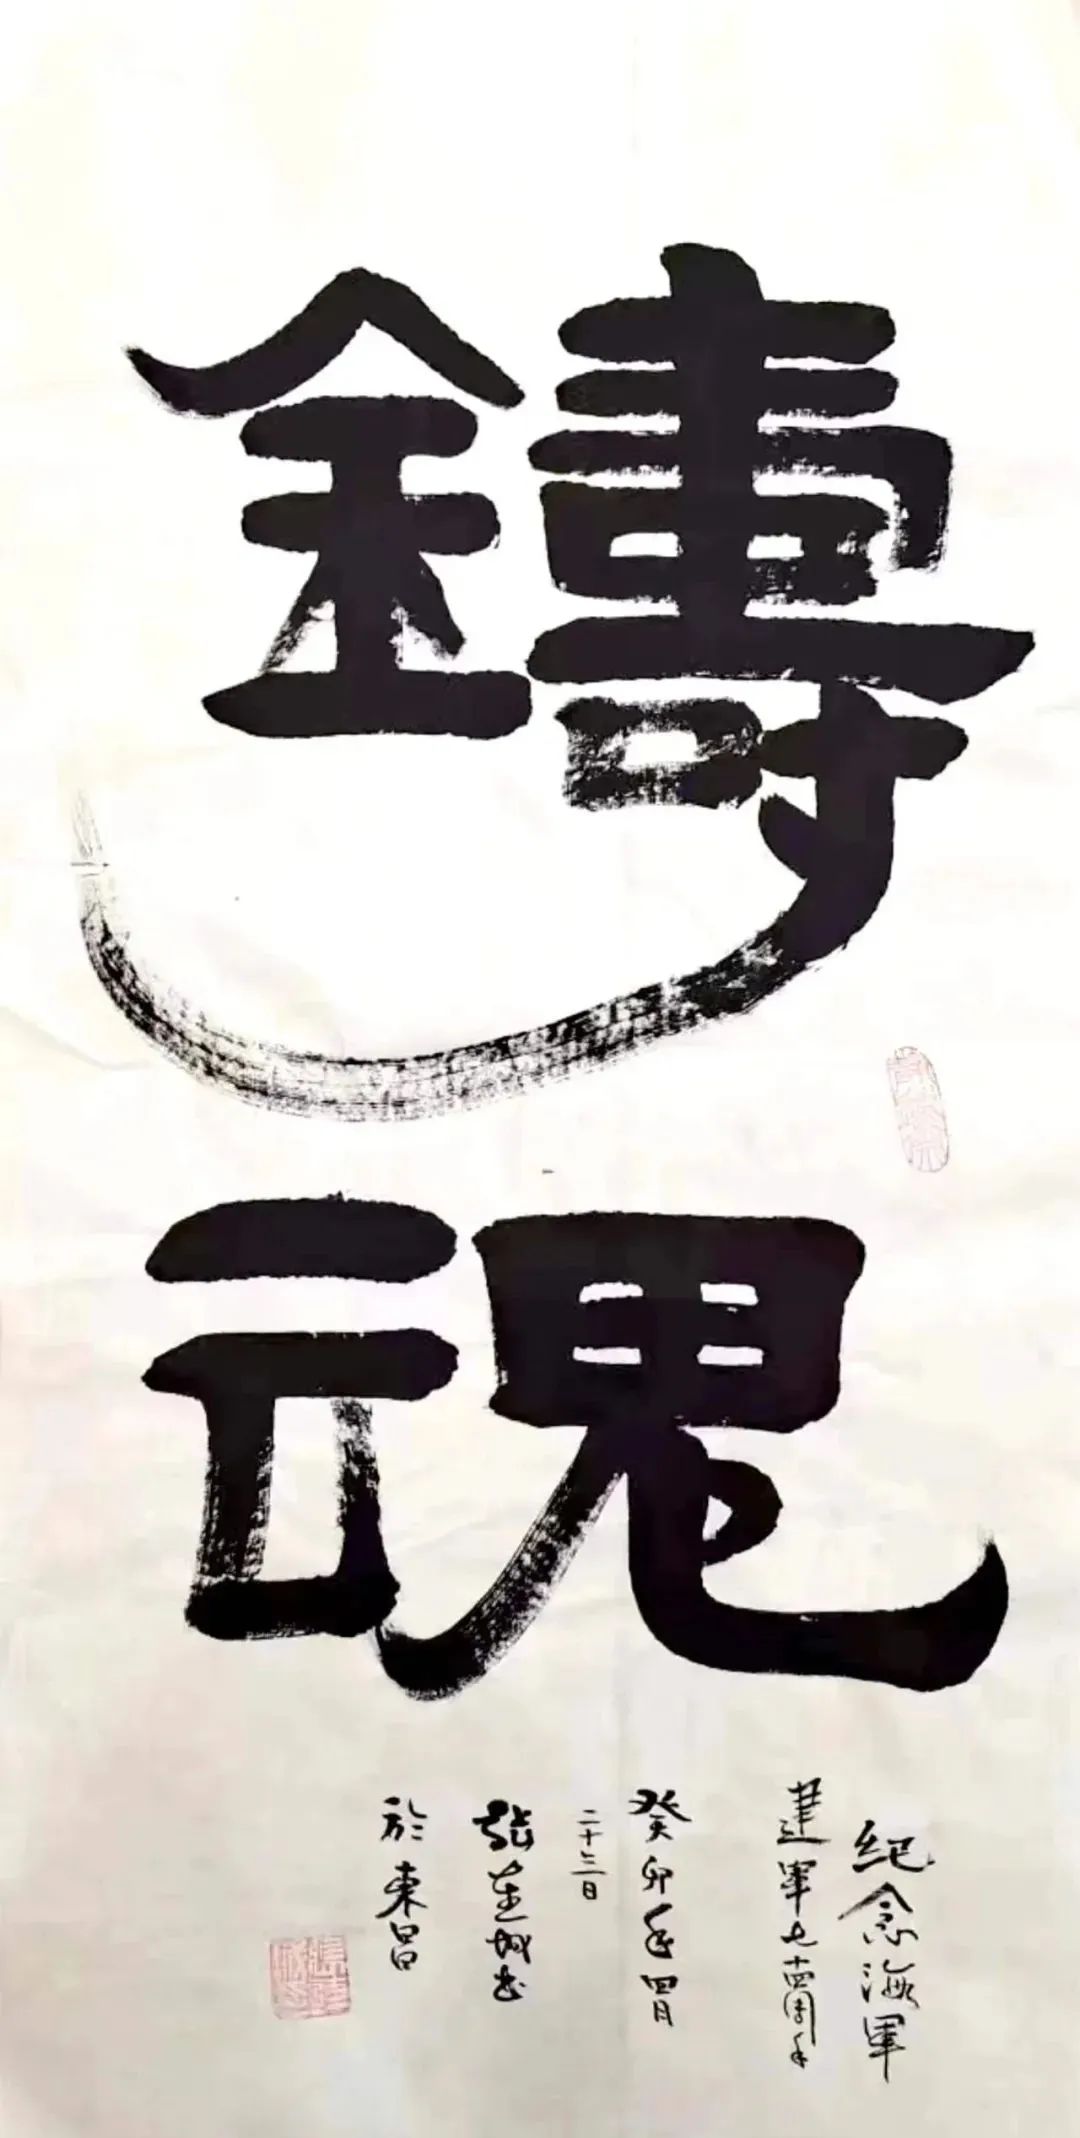 鑄
魂
纪念海軍
建軍七十四周年
癸卯年四月
二十三日
張
於東昌